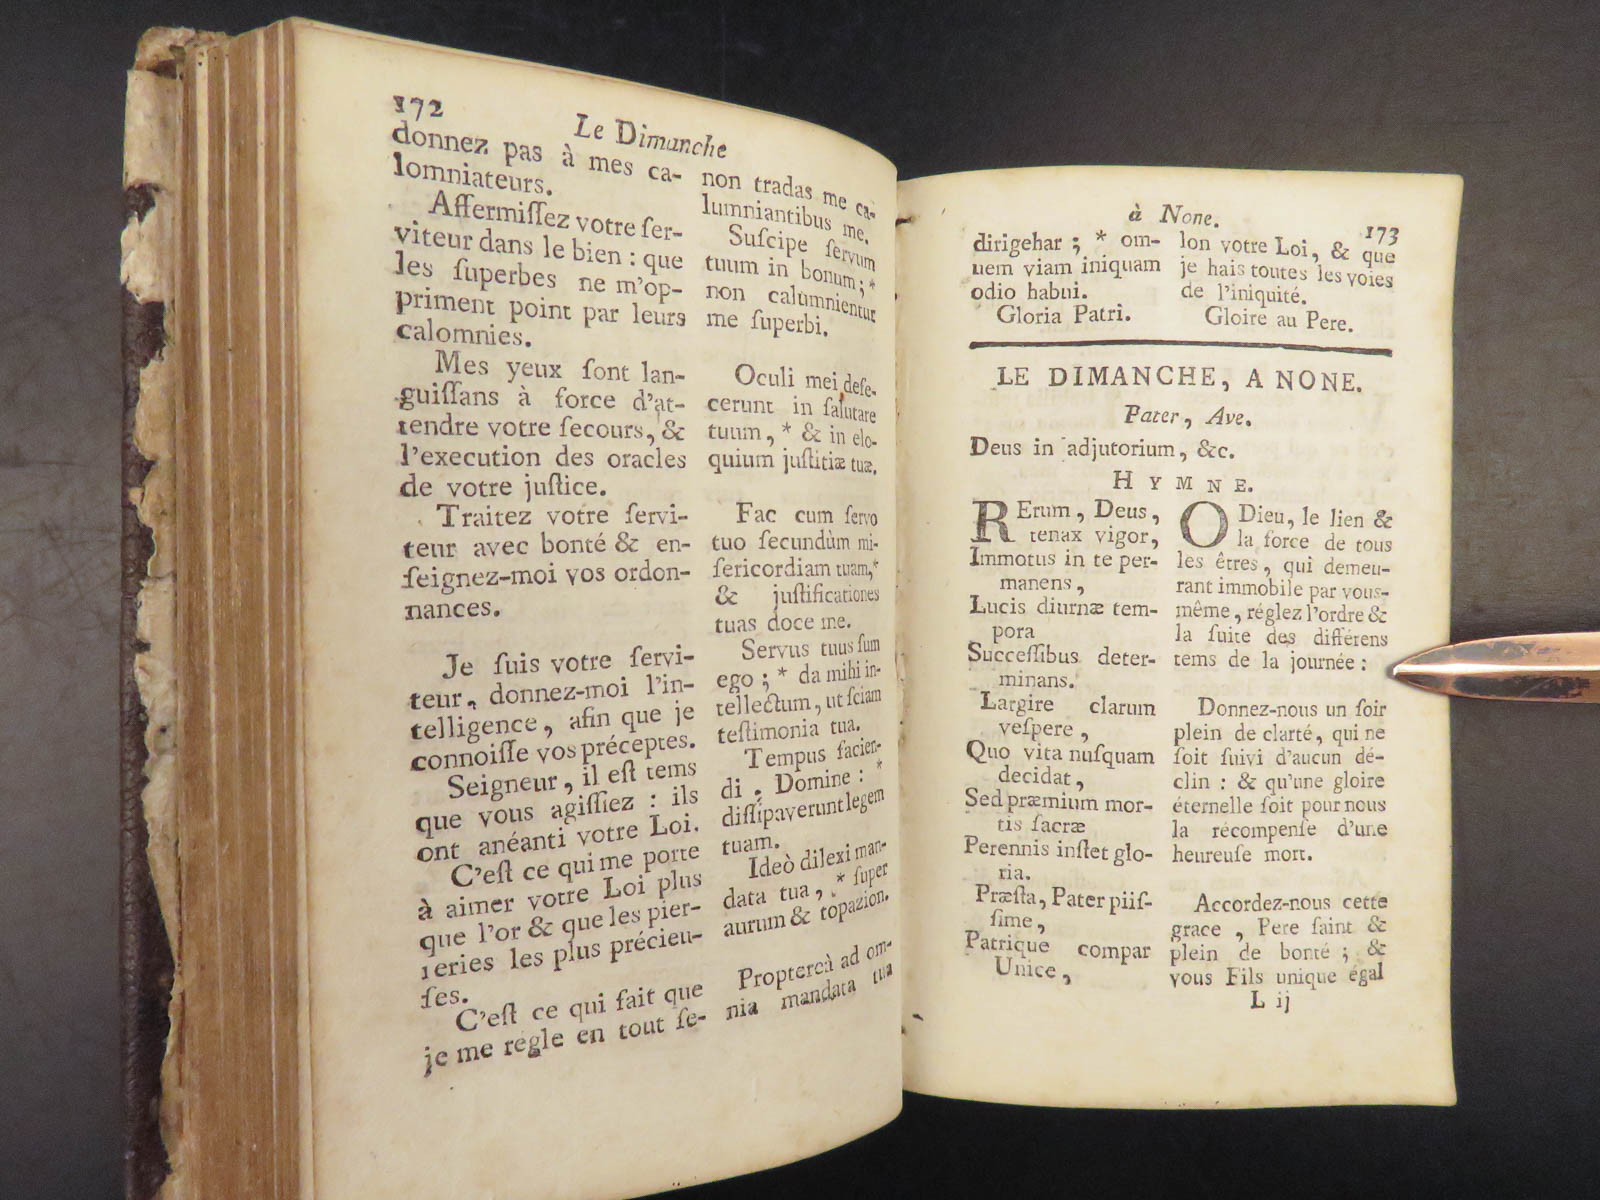 172
Le Dimanche
donnez pas à mes ca-
lomniateurs.
Affermiſſez votre ſer-
viteur dans le bien : que
les ſuperbes ne m'op-
priment point par leurs
calomnies.
Mes yeux ſont lan-
guiſſans à force d'at-
tendre votre ſecours, &
l'execution des oracles
de votre juſtice.
Traitez votre ſervi-
teur avec bonté & en-
ſeignez-moi vos ordon-
nances.
Je ſuis votre ſervi-
teur, donnez-moi l'in-
telligence, afin que je
connoiſſe vos préceptes.
Seigneur, il eſt tems
que vous agiſſiez : ils
ont anéanti votre Loi.
C'eſt ce qui me porte
à aimer votre Loi plus
que l'or & que les pier-
reries les plus précieu-
ſes.
C'eſt ce qui fait que
je me regle en tout ſe-
non tradas me ca-
lumniantibus me.
Suſcipe ſervum
tuum in bonum ; *
non calumnientur
me ſuperbi.
Oculi mei defe-
cerunt in ſalutare
tuum, * & in elo-
quium juſtitiæ tuæ.
Fac cum ſervo
tuo ſecundùm mi-
ſericordiam tuam, *
& juſtificationes
tuas doce me.
Servus tuus ſum
ego ; * da mihi in-
tellectum, ut ſciam
teſtimonia tua.
Tempus facien-
di, Domine : *
diſſipaverunt legem
tuam.
Ideò dilexi man-
data tua, * ſuper
aurum & topazion.
Proptereà ad om-
nia mandata tua
à None.
173
dirigebar ; * om-
nem viam iniquam
odio habui.
Gloria Patri.
lon votre Loi, & que
je hais toutes les voies
de l'iniquité.
Gloire au Pere.
LE DIMANCHE, A NONE.
Pater, Ave.
Deus in adjutorium, &c.
HYMNE.
RErum, Deus,
tenax vigor,
Immotus in te per-
manens,
Lucis diurnæ tem-
pora
Succeſſibus deter-
minans.
Largire clarum
veſpere,
Quo vita nuſquam
decidat,
Sed præmium mor-
tis ſacræ
Perennis inſtet glo-
ria.
Præſta, Pater piiſ-
ſime,
Patrique compar
Unice,
O Dieu, le lien &
la force de tous
les êtres, qui demeu-
rant immobile par vous-
même, réglez l'ordre &
la ſuite des différens
tems de la journée :
Donnez-nous un ſoir
plein de clarté, qui ne
ſoit ſuivi d'aucun dé-
clin : & qu'une gloire
éternelle ſoit pour nous
la récompenſe d'une
heureuſe mort.
Accordez-nous cette
grace, Pere ſaint &
plein de bonté ; &
vous Fils unique égal
L ij